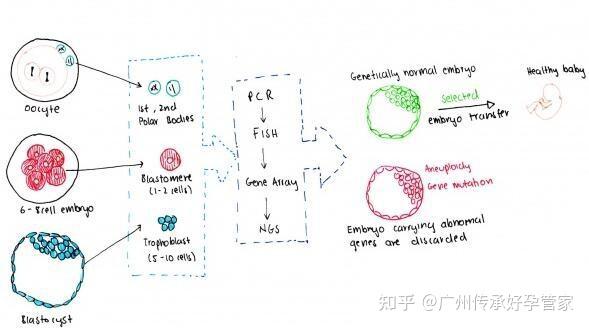 Oocyte
6-8 cell embryo
Blastocyst
1st, 2nd
Polar Bodies
Blastomere
(1-2 cells)
Trophoblast
(5-10 cells)
PCR
FISH
Gene Array
NGS
Genetically normal embryo
selected
embryo transfer
Healthy baby
Aneuploidy
Gene mutation
Embryo carrying abnormal
genes are discarded
知乎 @广州传承好孕管家